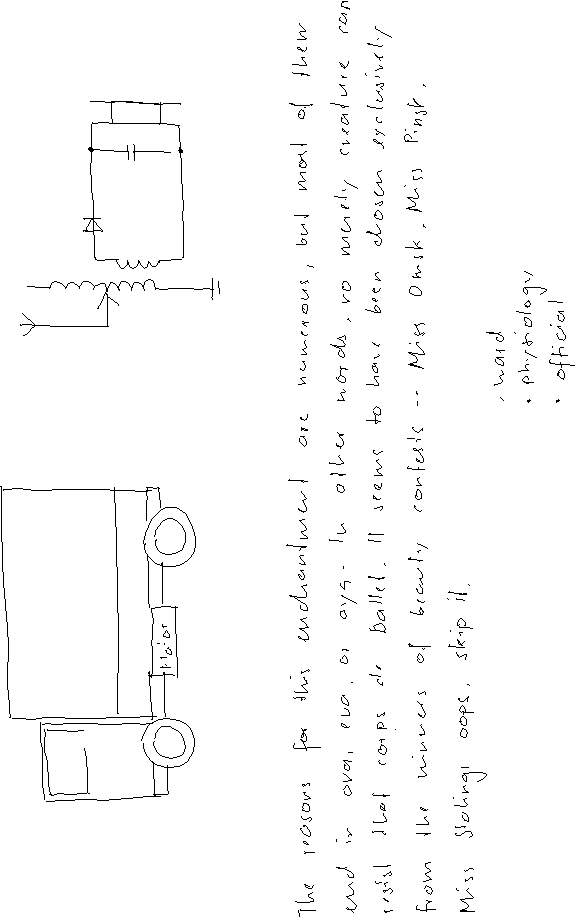 The reasons for this enchantment are numerous, but most of them
end in ova, eva, or aya. In other words, no merely creature can
resist that corps de ballet. It seems to have been chosen exclusively
from the winners of beauty contests -- Miss Omsk, Miss Pinsk,
Miss Stalingr oops, skip it.
• hard
• physiology
• official
Motor